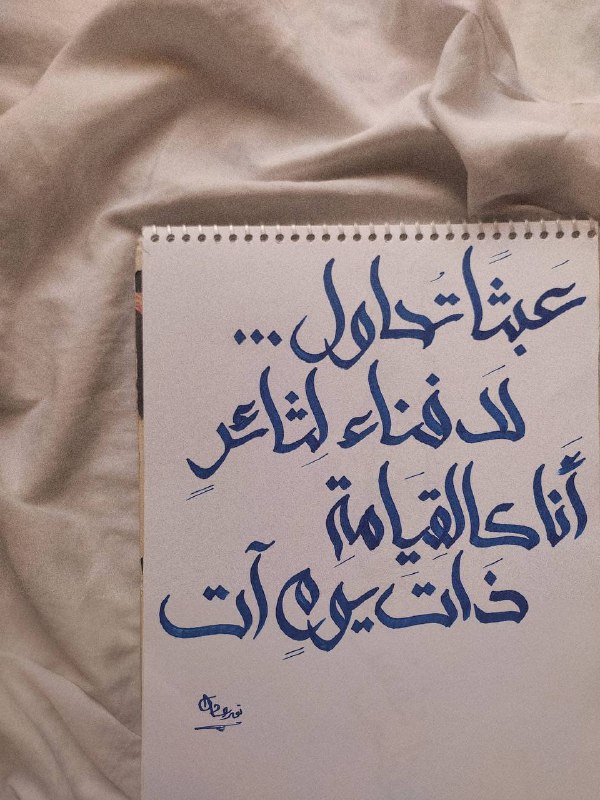 عَبثًا تُحاول...
لَا فناء لِثائرٍ
أَنا كالقِيَامةِ
ذَاتَ يومٍ آت